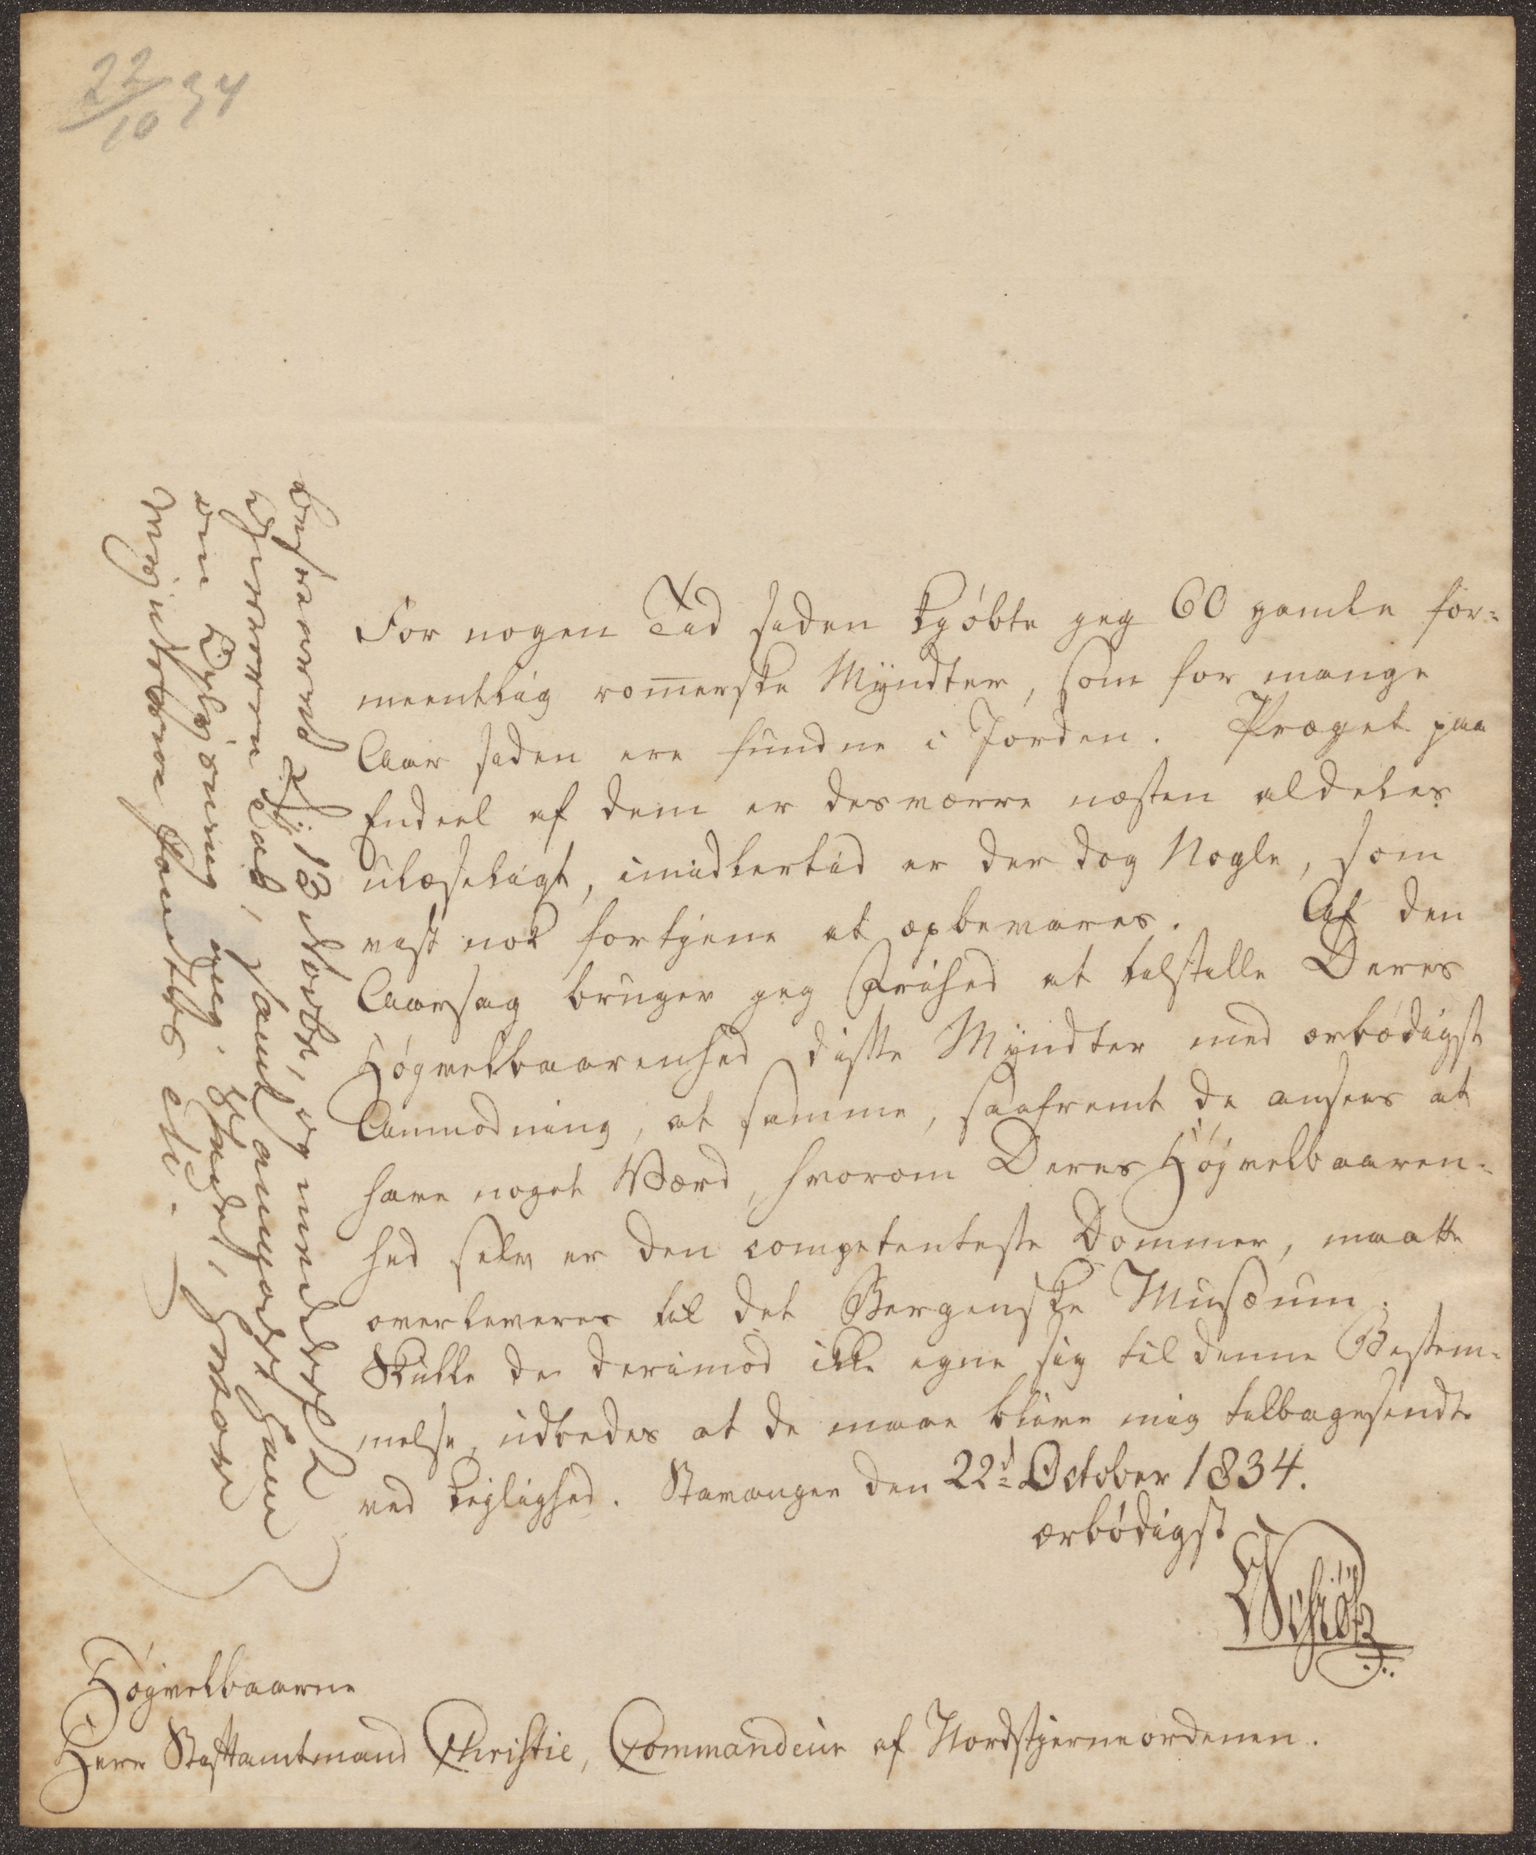 22/10 34
For nogen Tid siden kjøbte jeg 60 gamle for-
meentlig romerske Myndter, som for mange
Aar siden ere fundne i Jorden. Præget paa
Endeel af dem er desværre næsten aldeles
ulæseligt, imidlertid er der dog Nogle, som
vist nok fortjene at opbevares. Af den
Aarsag bruger jeg Frihed at tilstille Deres
Høgvelbaarenhed disse Myndter med ærbødigst
Anmodning, at samme, saafremt de ansees at
have noget Værd, hvorom Deres Høgvelbaaren-
hed selv er den competenteste Dommer, maatte
overleveres til det Bergenske Musæum.
Skulle de derimod ikke egne sig til denne Bestem-
melse, udbedes at de maae blive mig tilbagesendte
ved Lejlighed. Stavanger den 22d October 1834.
ærbødigst
Schiøtz
Høgvelbaarne
Herr Stiftamtmand Christie, Commandeur af Nordstjerneordenen.
Besvaret 13 Novbr, og
samt anmodet ham
om Oplysning
Mynterne